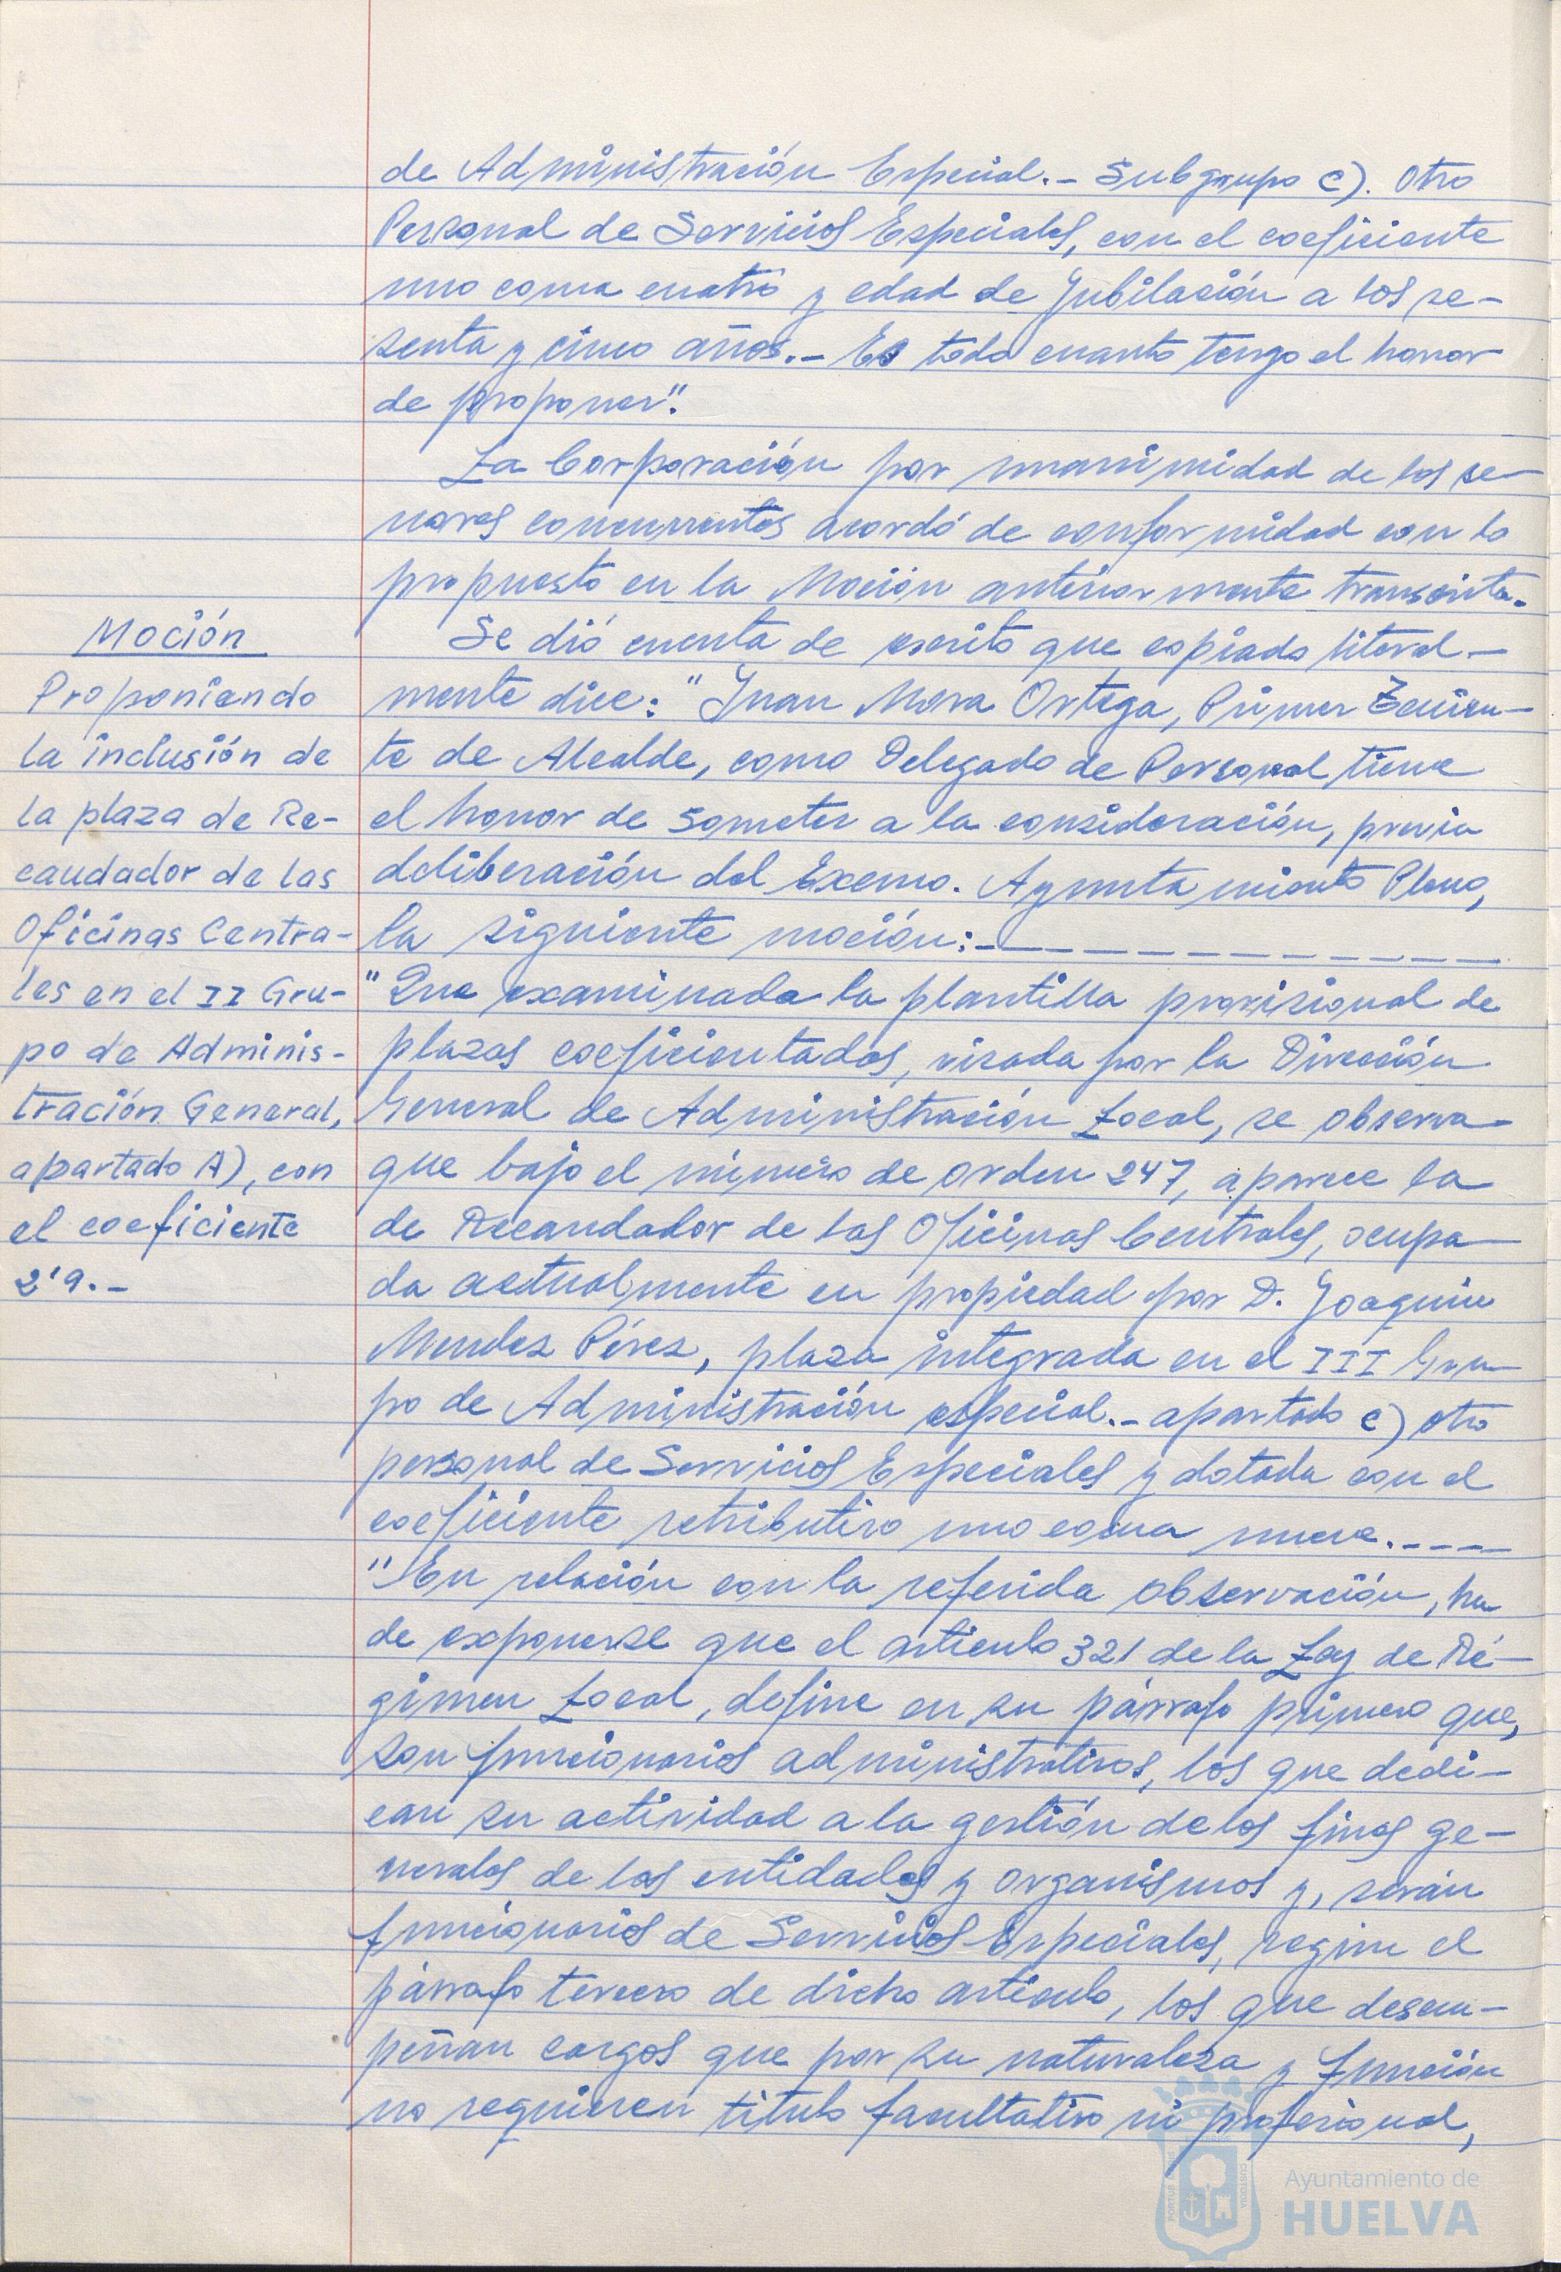 de Administración Especial.- Subgrupo C). Otro
Personal de Servicios Especiales, con el coeficiente
uno coma cuatro y edad de jubilación a los se-
senta y cinco años.- Es todo cuanto tengo el honor
de proponer".
La Corporación por unanimidad de los se-
ñores concurrentes acordó de conformidad con lo
propuesto en la Moción anteriormente transcrita.
Moción
Proponiendo
la inclusión de
la plaza de Re-
caudador de las
Oficinas Centra-
les en el II Gru-
po de Adminis-
tración General,
apartado A), con
el coeficiente
2'9.-
Se dió cuenta de escrito que copiado literal-
mente dice: "Juan Mora Ortega, Primer Tenien-
te de Alcalde, como Delegado de Personal tiene
el honor de someter a la consideración, previa
deliberación del Excmo. Ayuntamiento Pleno,
la siguiente moción:- - - - - - - - - - - -
"Que examinada la plantilla provisional de
plazas coeficientadas, visada por la Dirección
General de Administración Local, se observa
que bajo el número de orden 247, aparece la
de Recaudador de las Oficinas Centrales, ocupa-
da actualmente en propiedad por D. Joaquin
Mendez Pérez, plaza integrada en el III Gru-
po de Administración especial.- apartado c) otro
personal de Servicios Especiales y dotada con el
coeficiente retributivo uno coma nueve.- - - -
"En relación con la referida observación, ha
de exponerse que el artículo 321 de la Ley de Ré-
gimen Local, define en su párrafo primero que,
son funcionarios administrativos, los que dedi-
can su actividad a la gestión de los fines ge-
nerales de las entidades y organismos y, serán
funcionarios de Servicios Especiales, según el
párrafo tercero de dicho artículo, los que desem-
peñan cargos que por su naturaleza y función
no requieren título facultativo ni profesional,
Ayuntamiento de
HUELVA